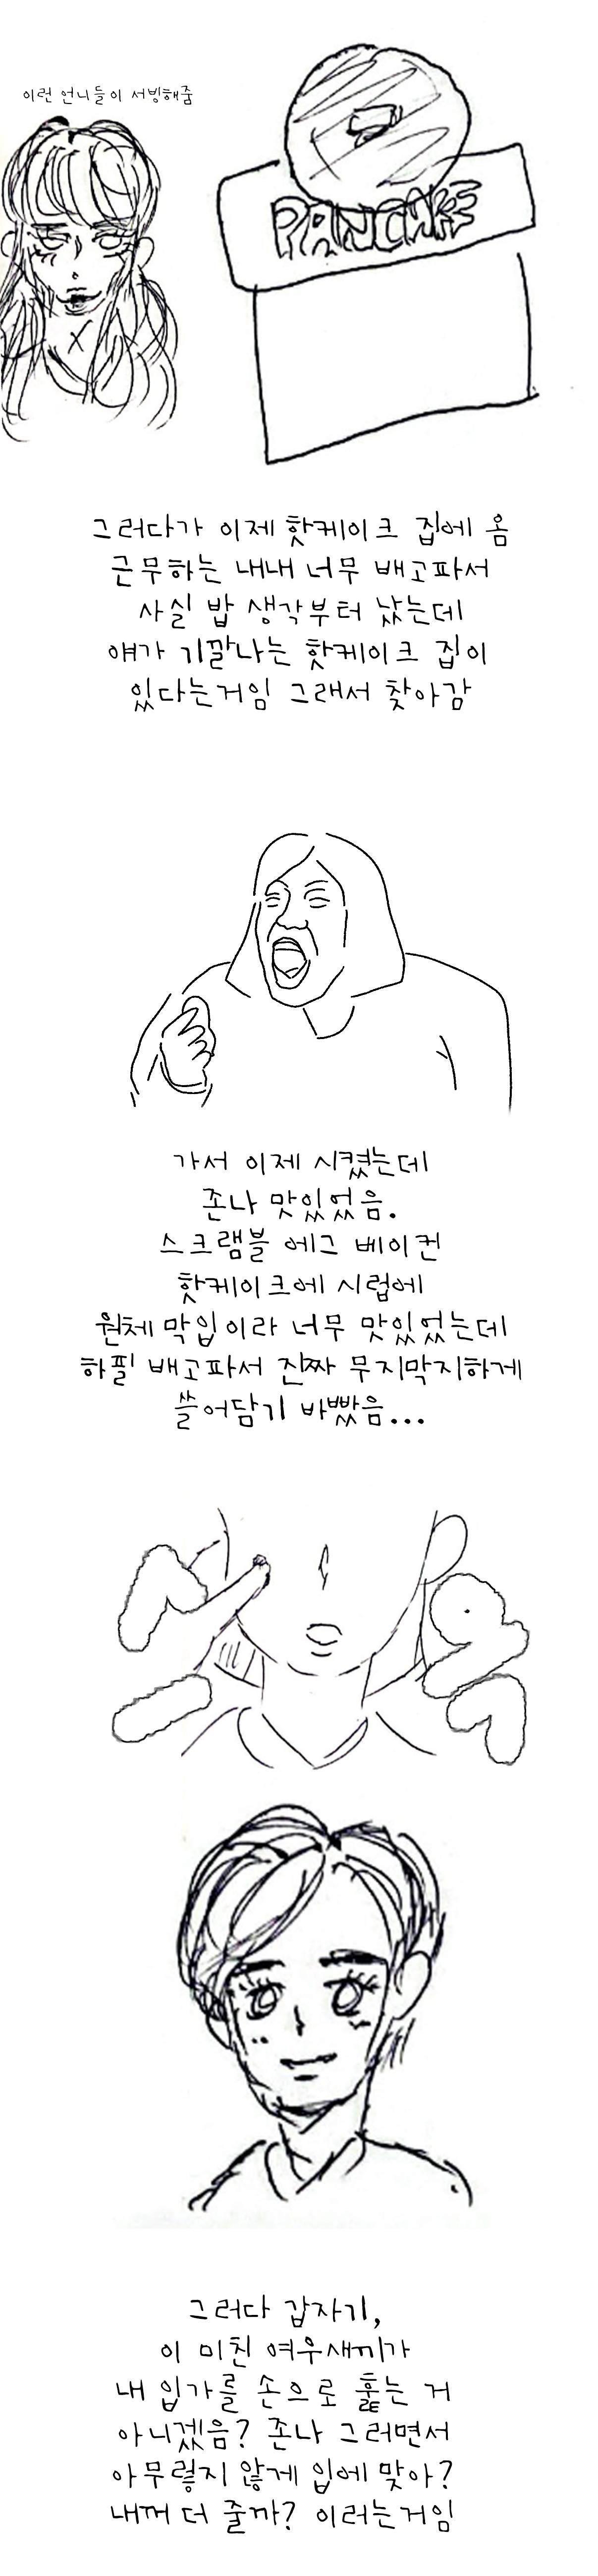 이런 언니들이 서빙해줌
PANCAKE
그러다가 이제 핫케이크 집에 옴
근무하는 내내 너무 배고파서
사실 밥 생각부터 났는데
얘가 기깔나는 핫케이크 집이
있다는거임 그래서 찾아감
가서 이제 시켰는데
존나 맛있었음.
스크램블 에그 베이컨
핫케이크에 시럽에
원체 막입이라 너무 맛있었는데
하필 배고파서 진짜 무지막지하게
쓸어담기 바빴음...
그러다 갑자기,
이 미친 여우새끼가
내 입가를 손으로 훑는 거
아니겠음? 존나 그러면서
아무렇지 않게 입에 맞아?
내꺼 더 줄까? 이러는거임